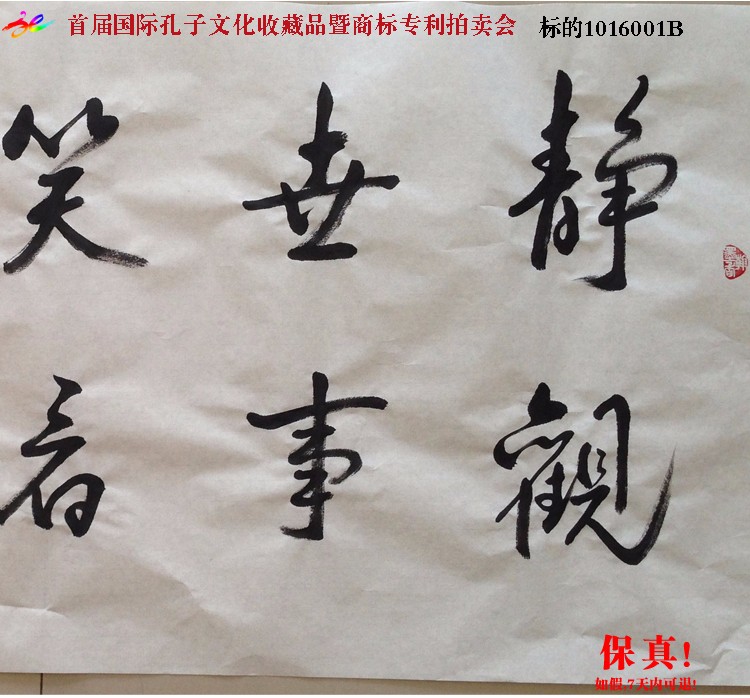 首届国际孔子文化收藏品暨商标专利拍卖会 标的1016001B
静觀
世事
笑看
保真!
如假,7天内可退!